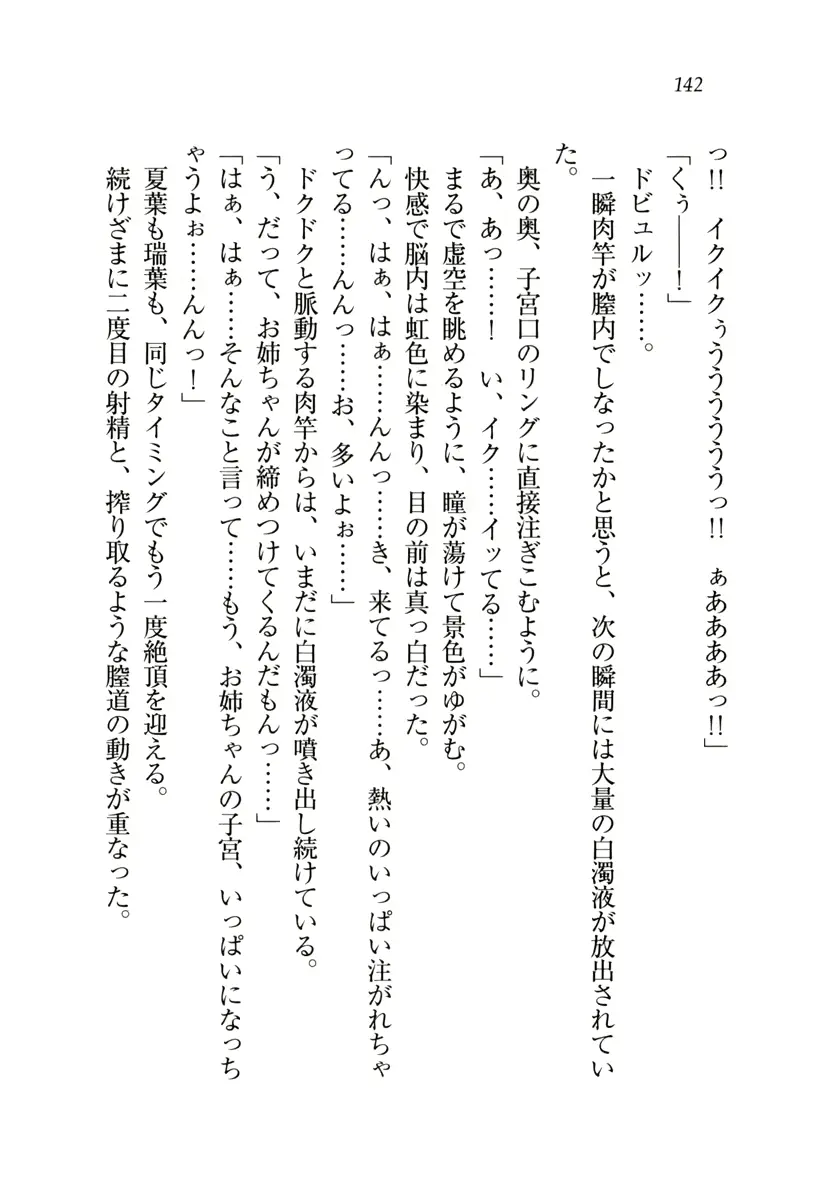 142
っ!!　イクイクぅうううううっ!!　ぁああああっ!!」
「くぅ――！」
ドビュルッ……。
一瞬肉竿が膣内でしなったかと思うと、次の瞬間には大量の白濁液が放出されてい
た。
奥の奥、子宮口のリングに直接注ぎこむように。
「あ、あっ……！　い、イク……イッてる……」
まるで虚空を眺めるように、瞳が蕩けて景色がゆがむ。
快感で脳内は虹色に染まり、目の前は真っ白だった。
「んっ、はぁ、はぁ……んんっ……き、来てるっ……あ、熱いのいっぱい注がれちゃ
ってる……んんっ……お、多いよぉ……」
ドクドクと脈動する肉竿からは、いまだに白濁液が噴き出し続けている。
「う、だって、お姉ちゃんが締めつけてくるんだもんっ……」
「はぁ、はぁ……そんなこと言って……もう、お姉ちゃんの子宮、いっぱいになっち
ゃうよぉ……んんっ！」
夏葉も瑞葉も、同じタイミングでもう一度絶頂を迎える。
続けざまに二度目の射精と、搾り取るような膣道の動きが重なった。